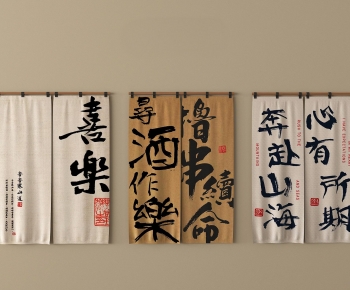 喜樂
尋酒作樂
擼串續命
心有所期
奔赴山海
MOUNTAINS
AND SEAS